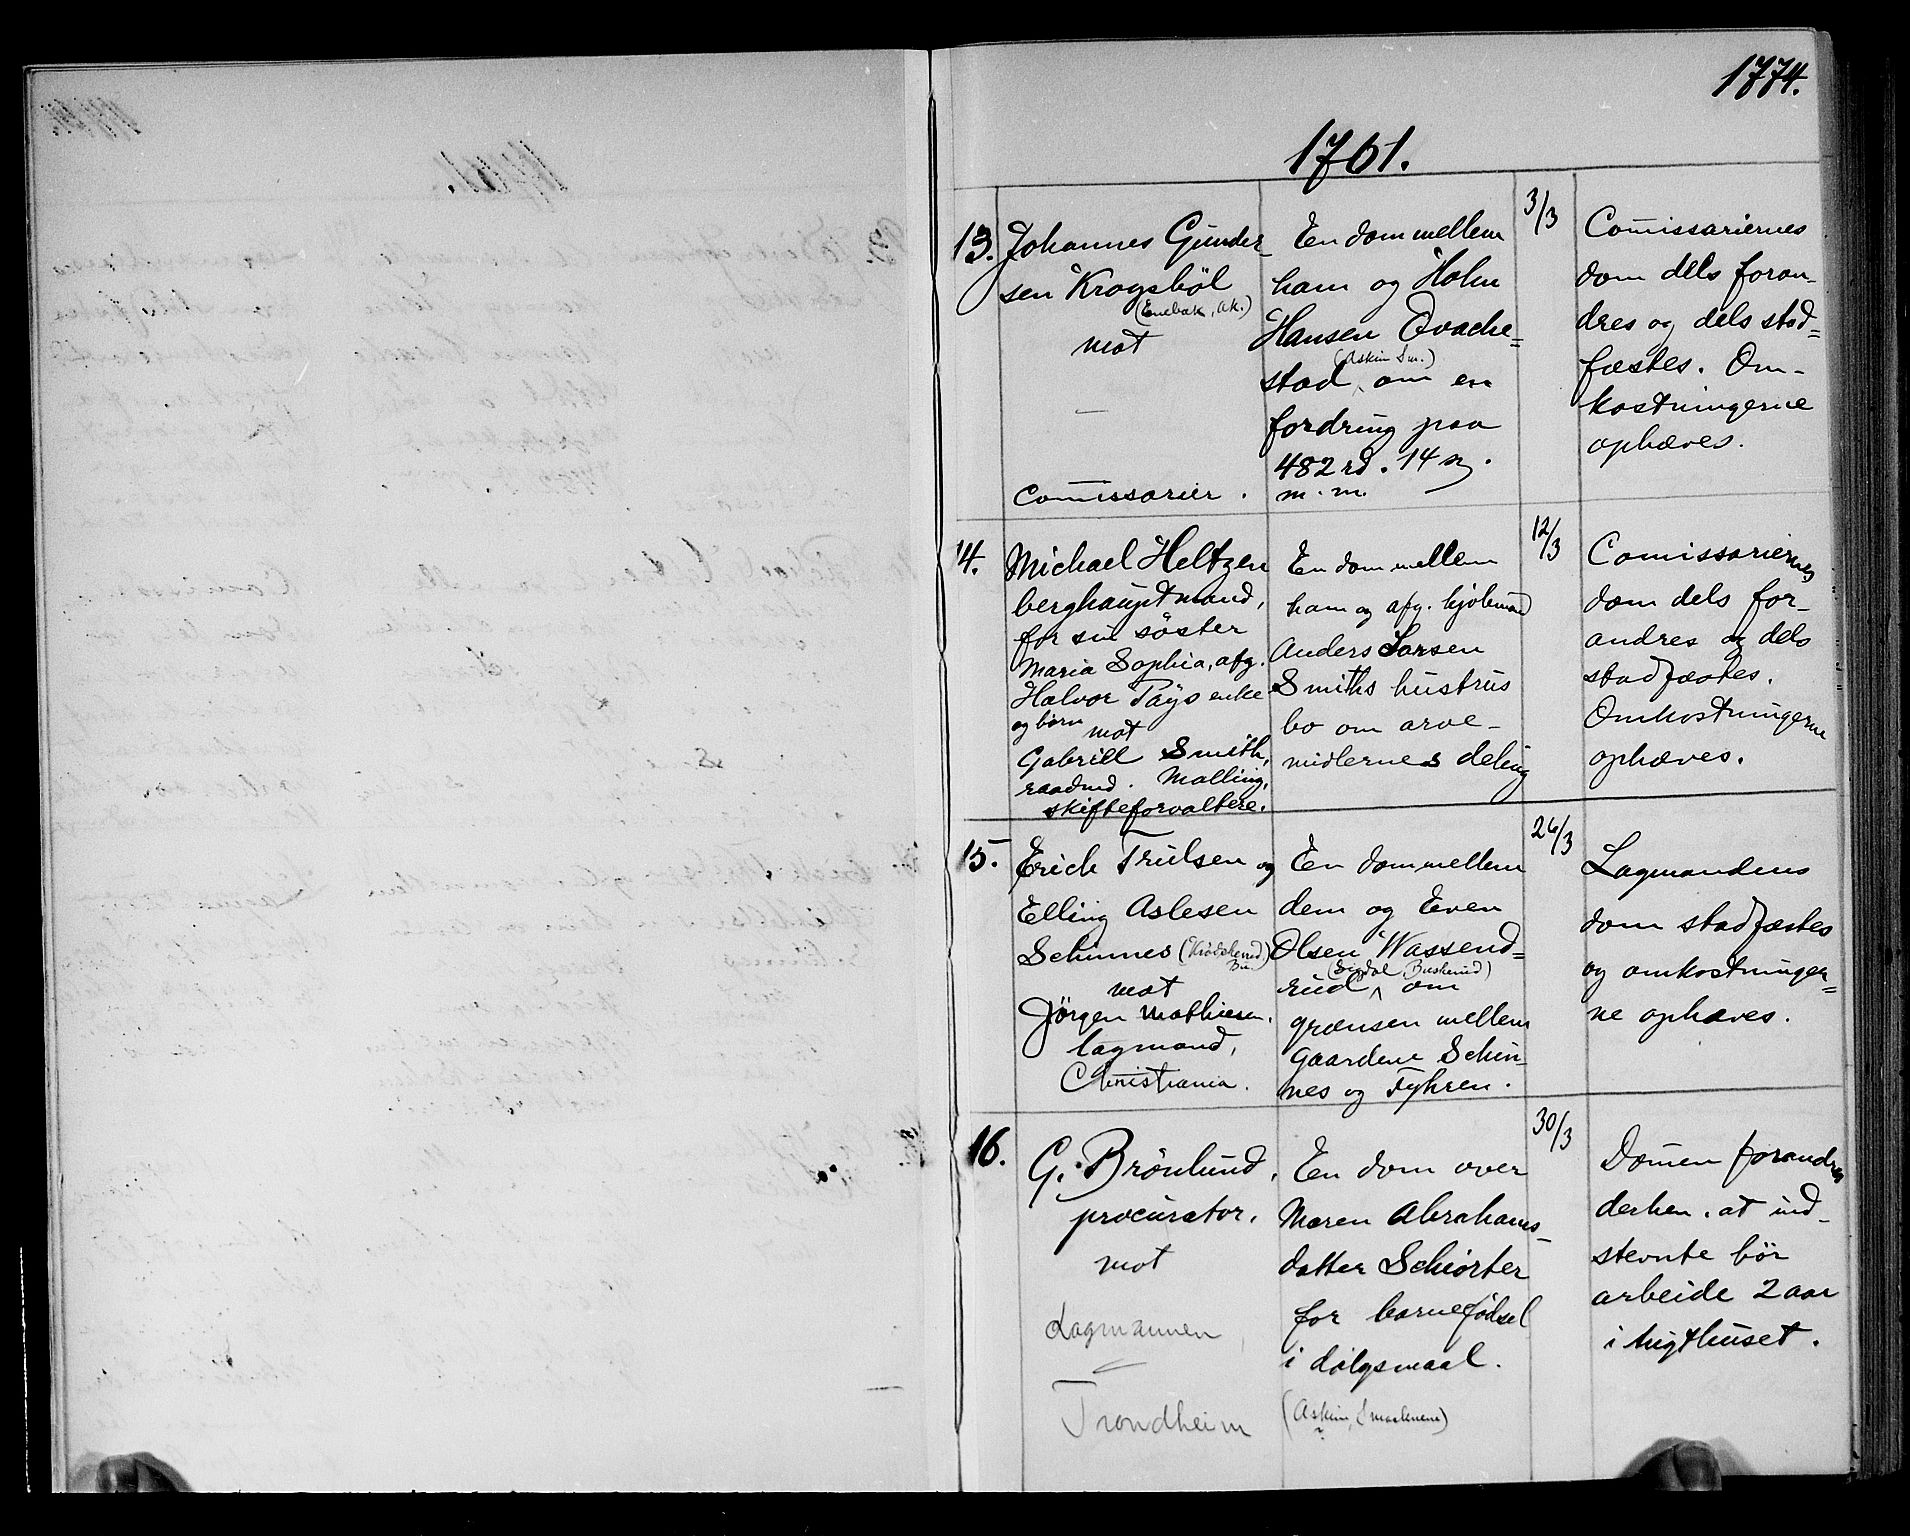 1774.
1761.
13. Johannes Gunder-
sen Kragsböl
(Enebak, Ak.)
mot
Comissarier.
En dom mellem
ham og Holm
Hansen Ovache=
(Askim Sm.)
stad, om en
fordring paa
482 rd. 14 s.
m.m.
3/3
Comissariernes
dom dels foran-
dres og dels stad=
fæstes. Om-
kostningerne
ophæves.
14. Michael Heltzen
berghauptmand,
for sin söster
Maria Sophia, afg.
Halvor Pays enke
og børn
mot
Gabriell Smith,
raadmd. Malling,
skifteforvaltere.
En dom mellem
ham og afg. kjøbmand
Anders Larsen
Smiths hustrus
bo om arve-
midlernes deling
12/3
Comissariernes
dom dels for-
andres og dels
stadfæstes.
Omkostningerne
ophæves.
15. Erich Trulsen og
Elling Aslesen
Schinnes (Krødsherred, Bu.)
mot
Jörgen Mathiesen,
lagmand,
Christiania.
En dom mellem
dem og Even
Olsen Wassend=
(Sigdal, Buskerud)
rud om
grænsen mellem
gaardene Schin-
nes og Fyhren.
26/3
Lagmandens
dom stadfæstes
og omkostninger=
ne ophæves.
16. G. Brönlund,
procurator,
mot
Lagmannen,
Trondheim
En dom over
Maren Abrahams-
datter Schiorter
for barnefödsel
i dölgsmaal.
(Askim, Smaalenene)
30/3
Domen forandres
derhen, at ind-
stevnte bör
arbeide 2 aar
i tugthuset.